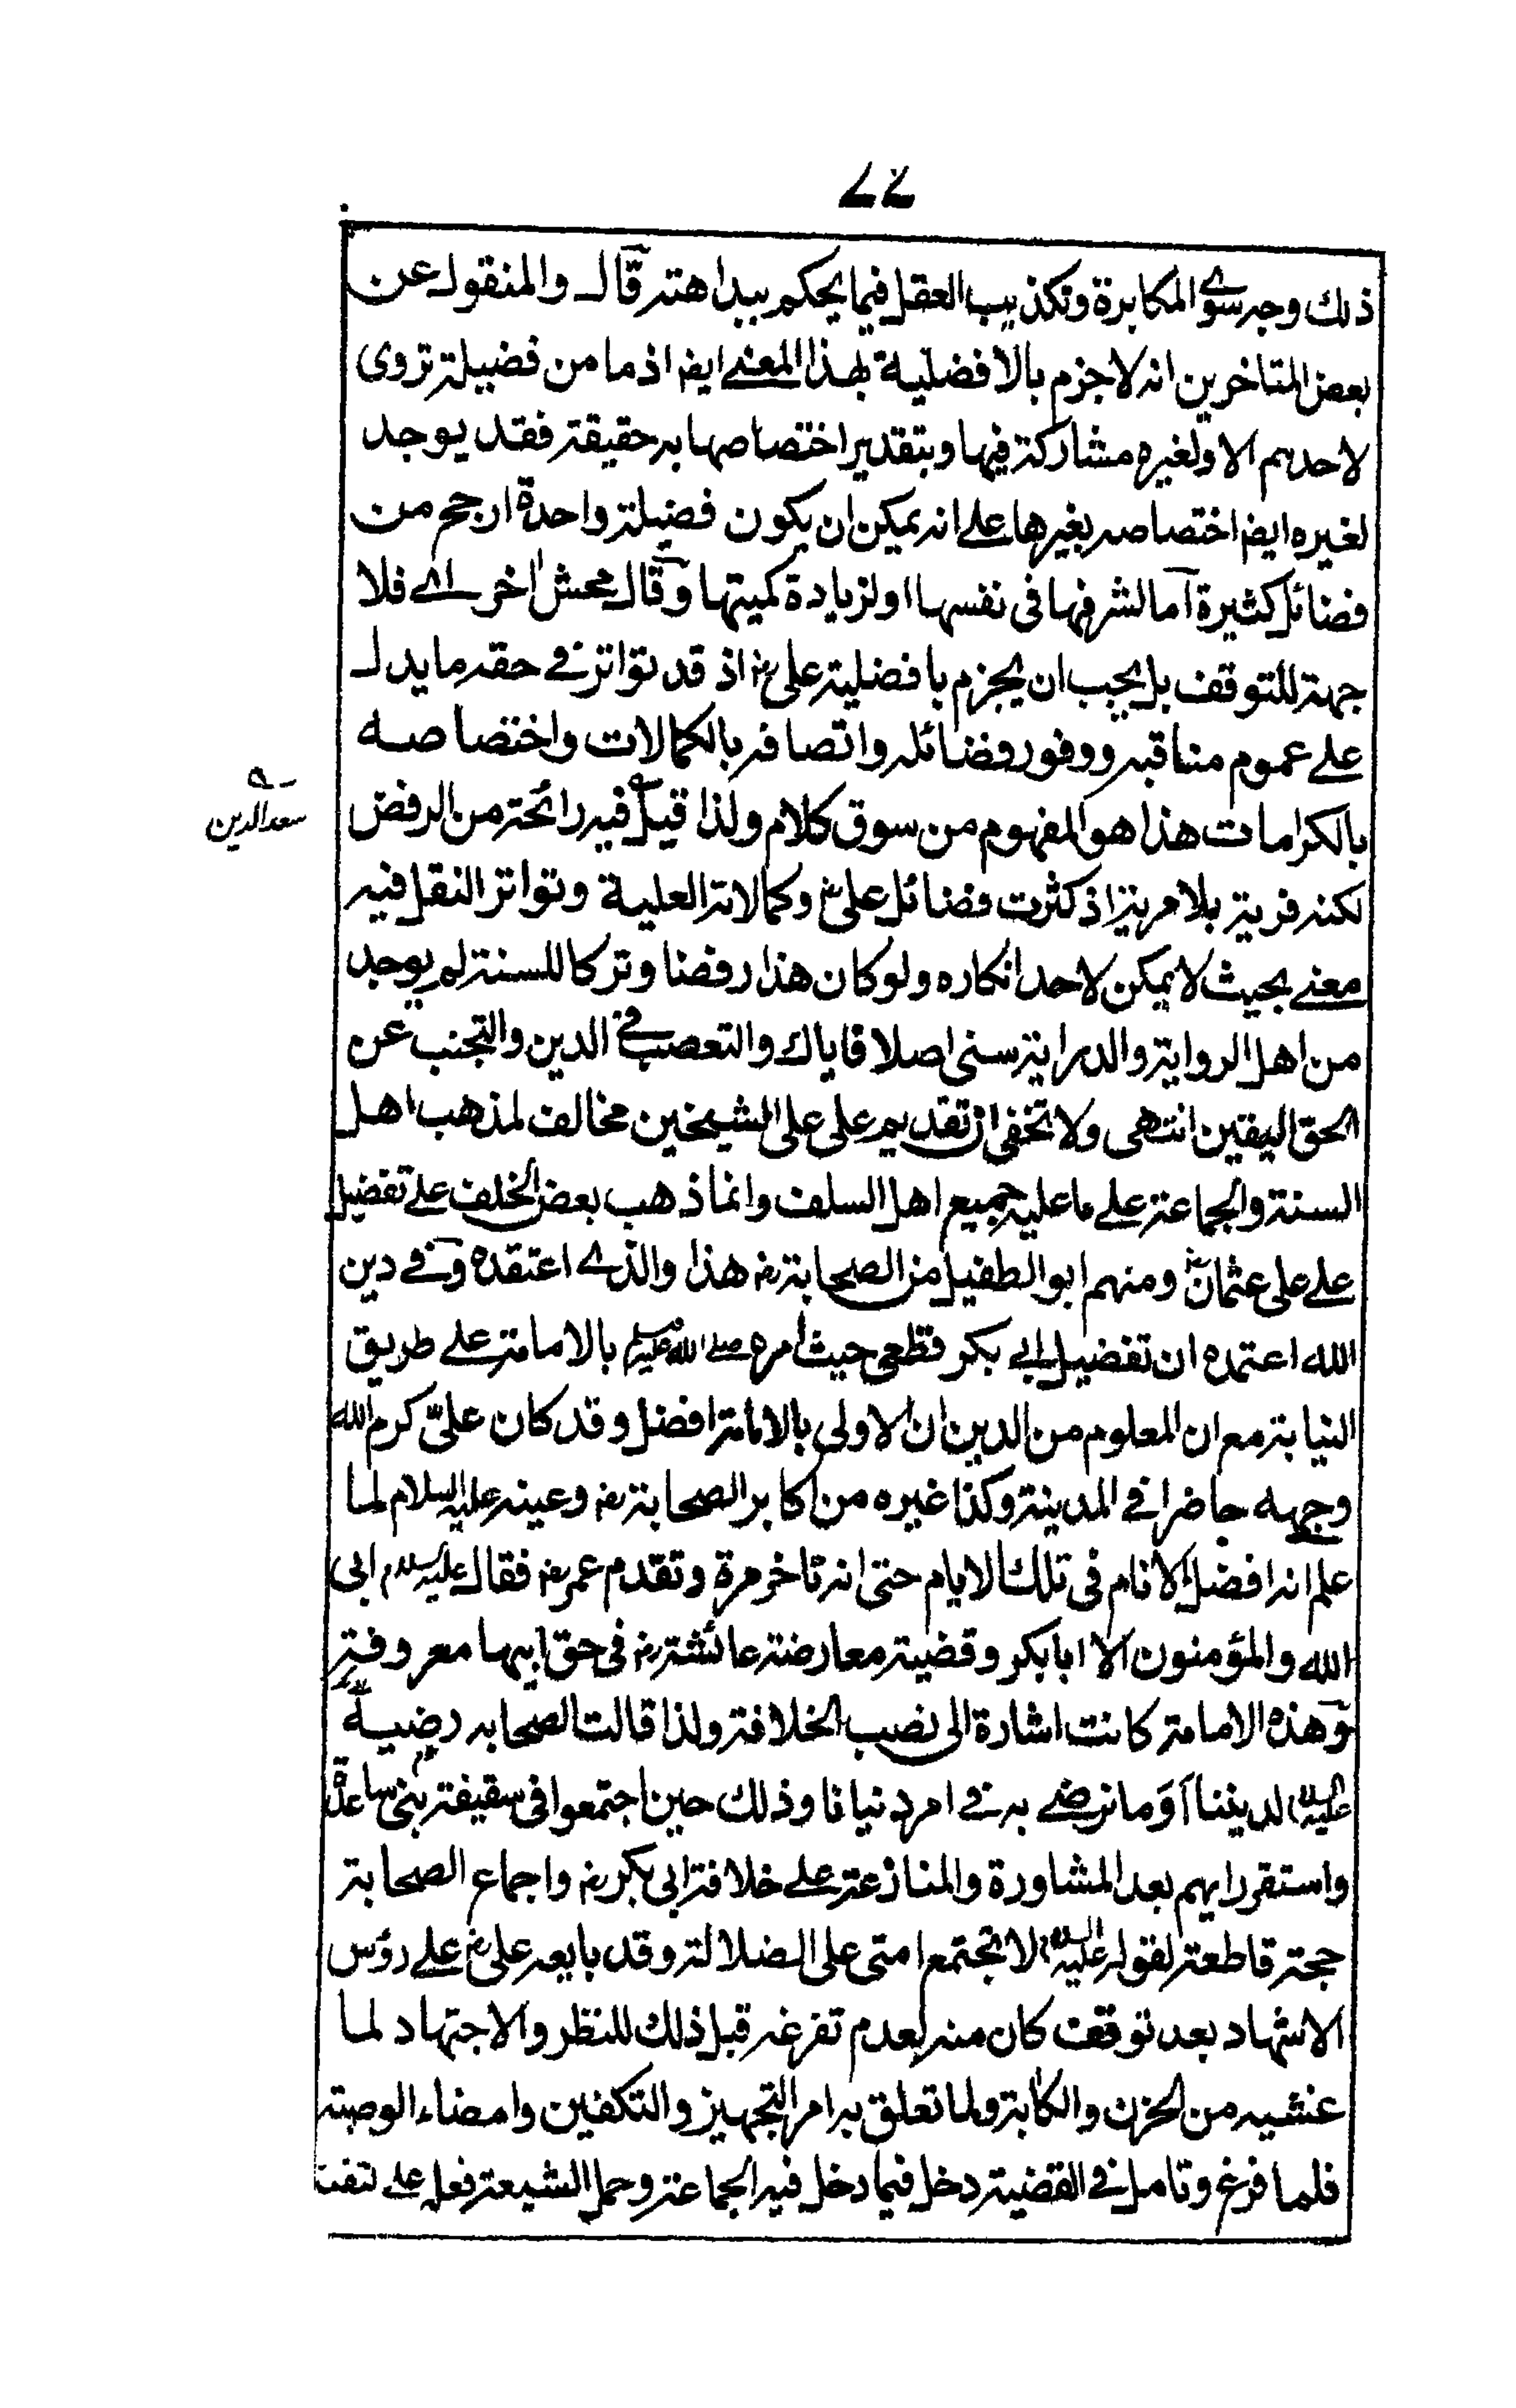 ٧٧
ذلك وجه سوى المكابرة وتكذيب العقل فيما يحكم ببداهته قال والمنقول عن
بعض المتاخرين انه لا جزم بالافضلية بهذا المعنى ايض اذ ما من فضيلة تروى
لاحدهم الا ولغيره مشاركة فيها وبتقدير اختصاصها به حقيقة فقد يوجد
لغيره ايض اختصاصه بغيرها على انه يمكن ان يكون فضيلة واحدة ارجح من
فضائل كثيرة اما لشرفها فى نفسها او لزيادة كميتها وقال محش اخر اى فلا
جهة للتوقف بل يجب ان يجزم بافضلية على رض اذ قد تواتر فى حقه ما يدل
على عموم مناقبه ووفور فضائله واتصافه بالكمالات واختصاصه
بالكرامات هذا هو المفهوم من سوق كلام ولذا قيل فيه رائحة من الرفض
سعد الدين
لكنه فرية بلا مرية اذ كثرت فضائل على رض وكمالاته العلية وتواتر النقل فيه
معنى بحيث لا يمكن لاحد انكاره ولو كان هذا رفضا وتركا للسنة لم يوجد
من اهل الرواية والدراية سنى اصلا فاياك والتعصب فى الدين والتجنب عن
الحق اليقين انتهى ولا تخفى ان تقديم على على الشيخين مخالف لمذهب اهل
السنة والجماعة على ما عليه جميع اهل السلف وانما ذهب بعض الخلف على تفضيل
على على عثمان رض ومنهم ابو الطفيل من الصحابة رض هذا والذى اعتقده وفى دين
الله اعتمده ان تفضيل ابى بكر قطعى حيث امره صلى الله عليه وسلم بالامامة على طريق
النيابة مع ان المعلوم من الدين ان الاولى بالامامة افضل وقد كان علىّ كرم الله
وجهه حاضرا فى المدينة وكذا غيره من اكابر الصحابة رض وعينه عليه السلام لما
علم انه افضل الانام فى تلك الايام حتى انه تاخر مرة وتقدم عمر رض فقال عليه السلام ابى
الله والمؤمنون الا ابا بكر وقضية معارضة عائشة رض فى حق ابيها معروفة
وهذه الامامة كانت اشارة الى نصب الخلافة ولذا قالت الصحابه رضيه
عليه السلام لديننا اَوَما نرضى به فى امر دنيانا وذلك حين اجتمعوا فى سقيفة بنى ساعدة
واستقر رايهم بعد المشاورة والمنازعة على خلافة ابى بكر رض واجماع الصحابة
حجة قاطعة لقوله عليه السلام لا تجتمع امتى على الضلالة وقد بايعه على رض على رؤس
الاشهاد بعد توقف كان منه لعدم تفرغه قبل ذلك للنظر والاجتهاد لما
غشيه من الحزن والكابة ولما تعلق به امر التجهيز والتكفين وامضاء الوصية
فلما فرغ وتامل فى القضية دخل فيما دخل فيه الجماعة وحمل الشيعة فعله على